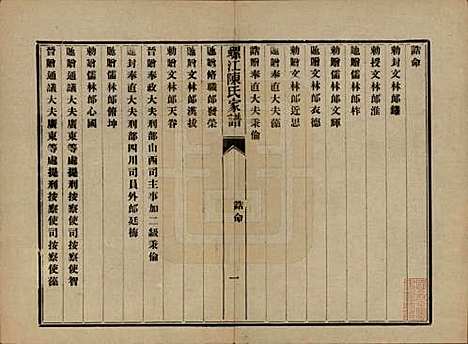 誥命
勅封文林郎鏞
勅授文林郎淮
勅贈儒林郎柞
勅贈儒林郎文輝
勅贈文林郎衣德
勅贈文林郎近思
誥贈奉直大夫藻
誥贈奉直大夫秉倫
螺江陳氏家譜
誥命
一
馳贈修職郎發榮
馳贈文林郎漢拔
勅贈文林郎天眷
晉贈奉政大夫刑部山西司主事加二級秉倫
馳封奉直大夫刑部四川司員外郎廷梅
馳贈儒林郎俯坤
勅贈儒林郎心國
晉贈通議大夫廣東等處提刑按察使司按察使智
晉贈通議大夫廣東等處提刑按察使司按察使藻